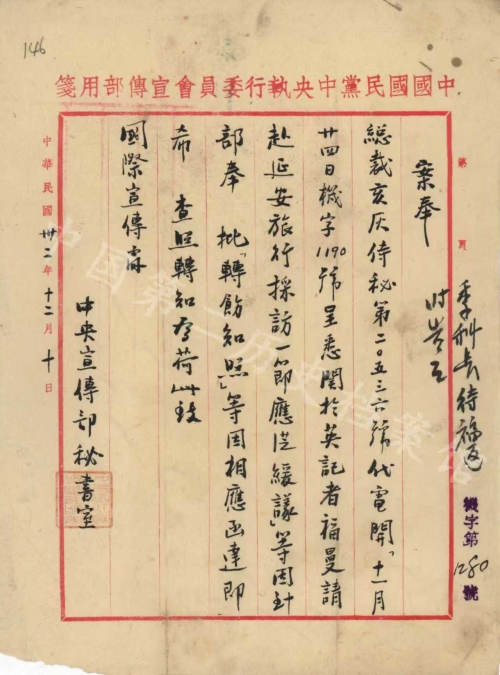 146
中國國民黨中央執行委員會宣傳部用箋
第 頁
機字第1280號
季科長待福返
案奉
總裁亥灰侍秘第二〇五三六號代電開「十一月
廿四日機字1190號呈悉關於英記者福曼請
赴延安旅行採訪一節應從緩議」等因到
部奉 批「轉飭知照」等因相應函達即
希 查照轉知為荷此致
國際宣傳處
中央宣傳部秘書室
中華民國卅二年十二月十日
中国第二历史档案馆